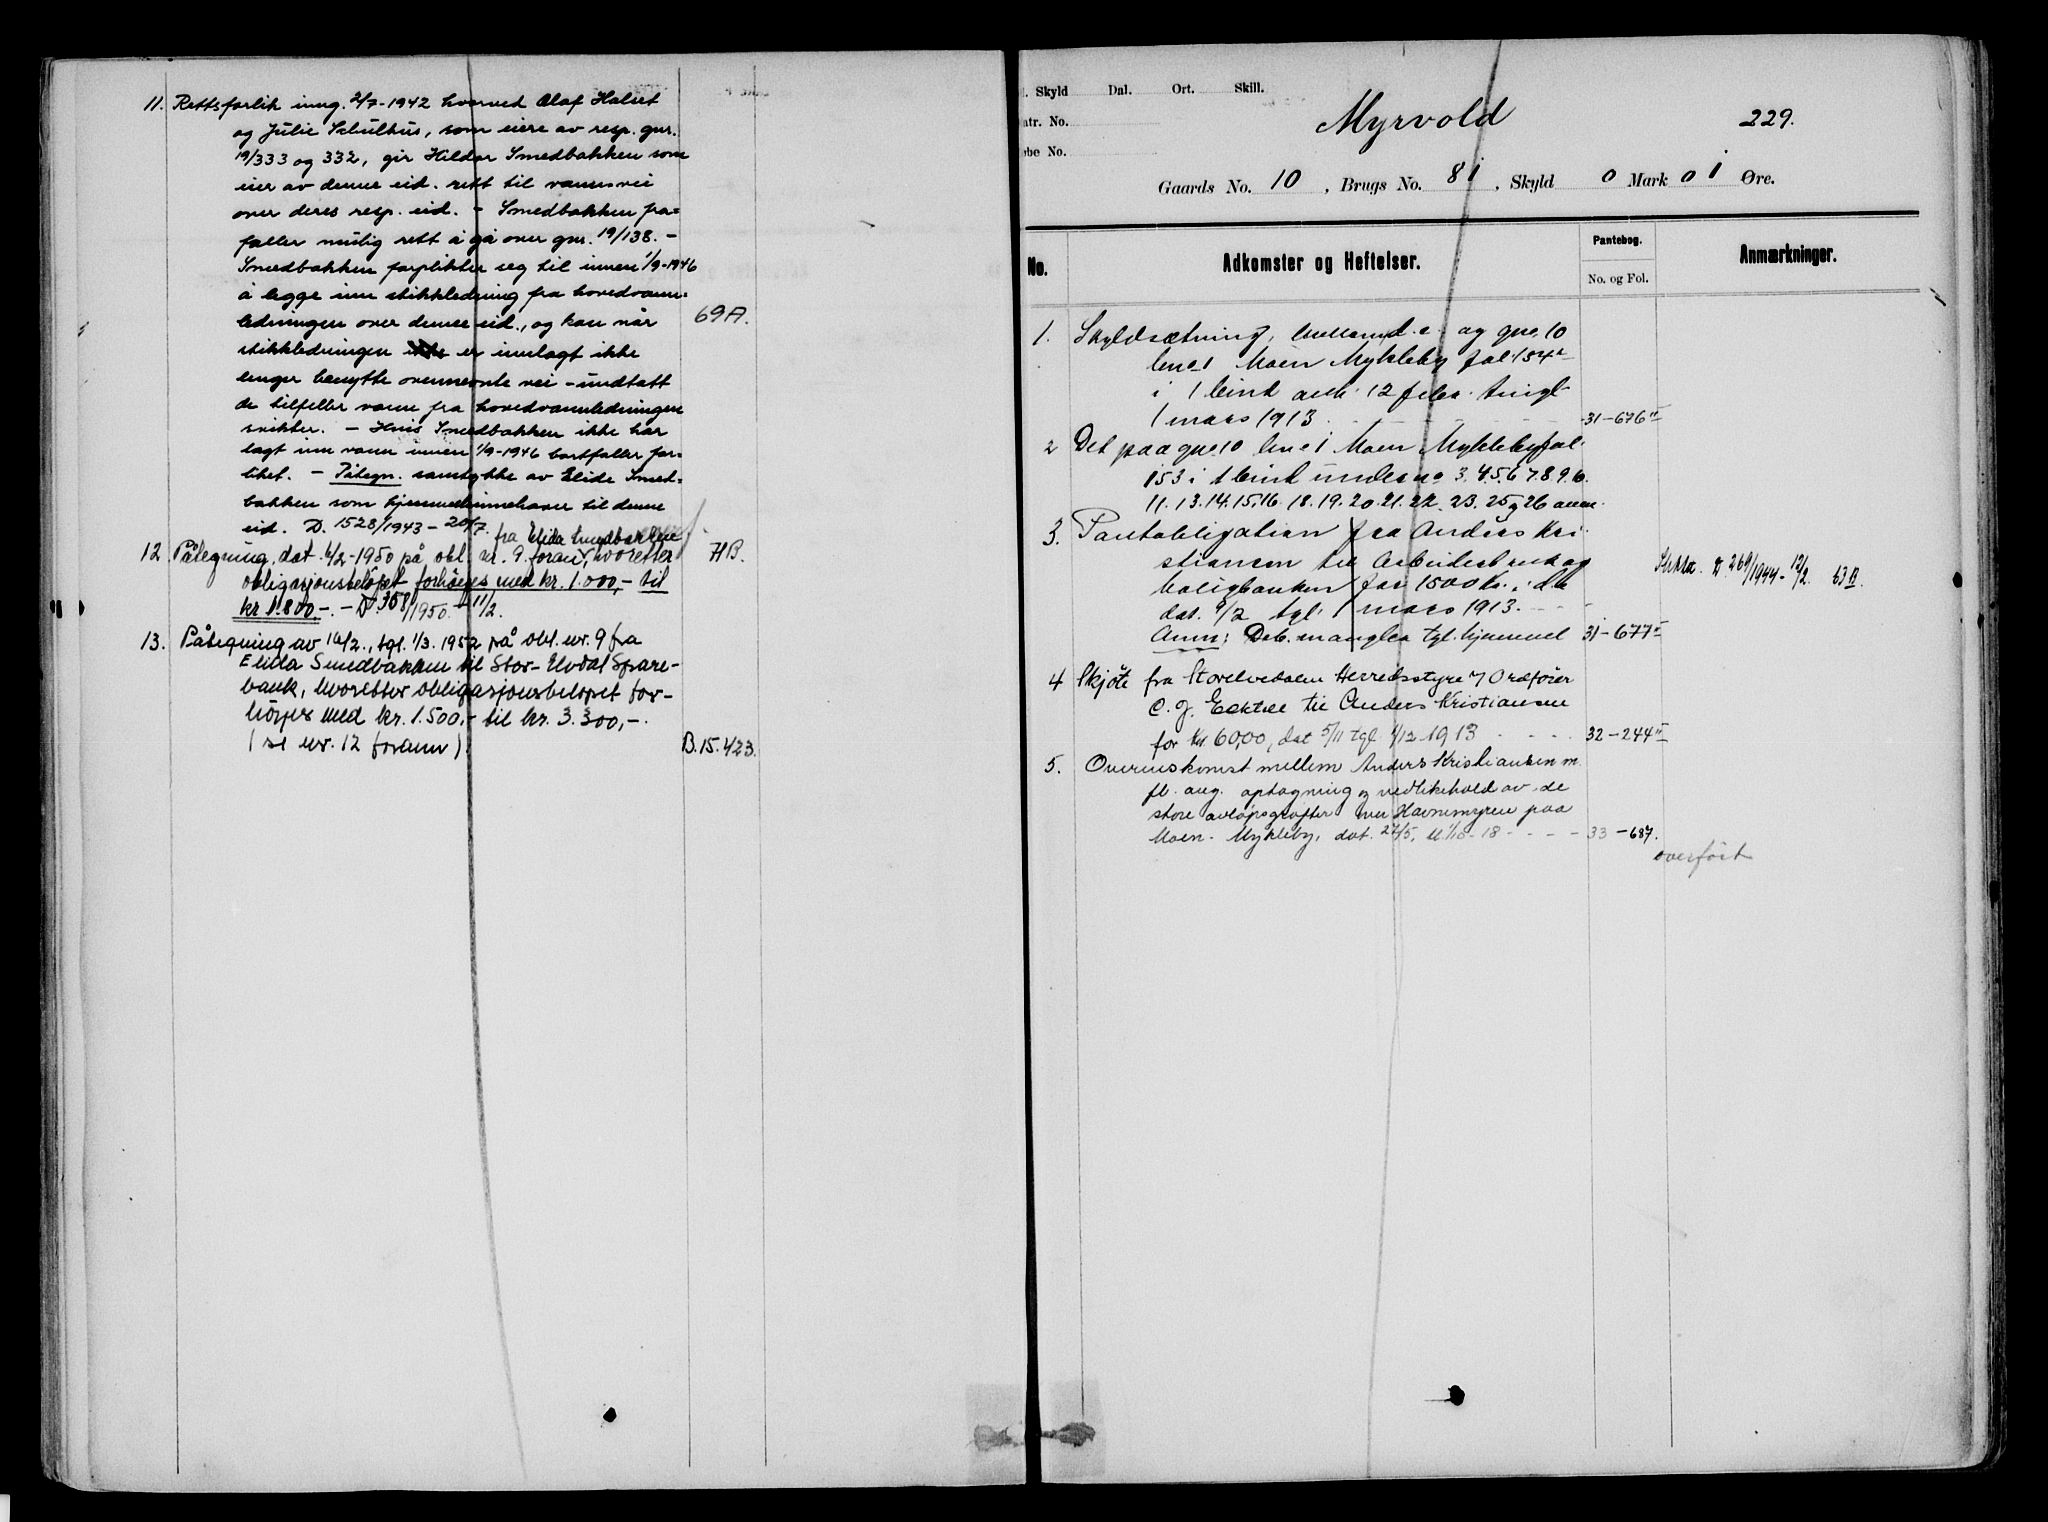 11. Rettsforlik inng. 2/7-1942 hvorved Olaf Halset
og Julie Schulhus, som eiere av resp. gnr.
19/333 og 332, gir Hildar Smedbakken som
eier av denne eid. rett til vannsvei
over deres resp. eid. - Smedbakken fra=
faller mulig rett å gå over gnr. 19/138. -
Smedbakken forplikter seg til innen 1/9-1946
å legge inn stikkledning fra hovedvann=
ledningen over denne eid., og kan når
stikkledningen er innlagt ikke
lenger benytte ovennevnte vei - undtatt
de tilfeller vann fra hovedvannledningen
svikter. - Hvis Smedbakken ikke har
lagt inn vann innen 1/9-1946 bortfaller for=
liket. - Påtegn. samtykke av Elide Smed=
bakken som hjemmelsinnehaver til denne
eid. D. 1528/1943 - 20/7.
69A.
fra Elida Smedbakken
12 Påtegning, dat. 6/2-1950 på obl. nr. 9 foran, hvoretter
obligasjonsbeløpet forhøyes med kr. 1.000,- til
kr 1.800-. - D. 358/1950 - 11/2.
7HB.
13. Påtegning av 16/2., tgl. 1/3. 1952 på obl. nr. 9 fra
Elida Smedbakken til Stor-Elvdal Spare-
bank, hvoretter obligasjonsbeløpet for-
høyes med kr. 1.500,- til kr. 3.300,-.
(se nr. 12 forann).
B.15.423.
Skyld Dal. Ort. Skill.
atr. No.
ebe No.
Myrvold
229.
Gaards No. 10, Brugs No. 81, Skyld 0 Mark 01 Øre.
No.
Adkomster og Heftelser.
Pantebog.
No. og Fol.
Anmærkninger.
1. Skyldsætning, mellem d. e. og gno. 10
bno 1 Moen Mykleby fol. 154
i 1 bind avh. 12 febr. tingl
1 mars 1913 31-676
2 Det paa gno 10 bno 1 Moen Mykleby fol.
153 i 1 bind under no 3. 4. 5. 6 7. 8. 9. 10.
11. 13. 14. 15. 16. 18. 19. 20. 21. 22. 23. 25 og 26 anm.
3. Pantobligation fra Anders Kri
stiansen til Arbeiderbruk og
boligbanken for 1500 Kr.
dat. 9/2 tgl. 1 mars 1913.
Anm: Deb. mangler tgl. hjemmel 31-677
Slettet D. 269/1944 - 12/2. 63B.
4 Skjøte fra Storelvedalens Herredsstyre v/ Ordfører
C. J. til Anders Kristiansen
for Kr. 60,00, dat 5/11 tgl 1/12-1913 32-244
5. Overenskomst mellem Anders Kristiansen m.
fl. ang. optagning og vedlikehold av de
store avløpsgrøfter over Havnemyren paa
Moen-Mykleby, dat. 27/5, tl. 1/10-18 33-687.
overført